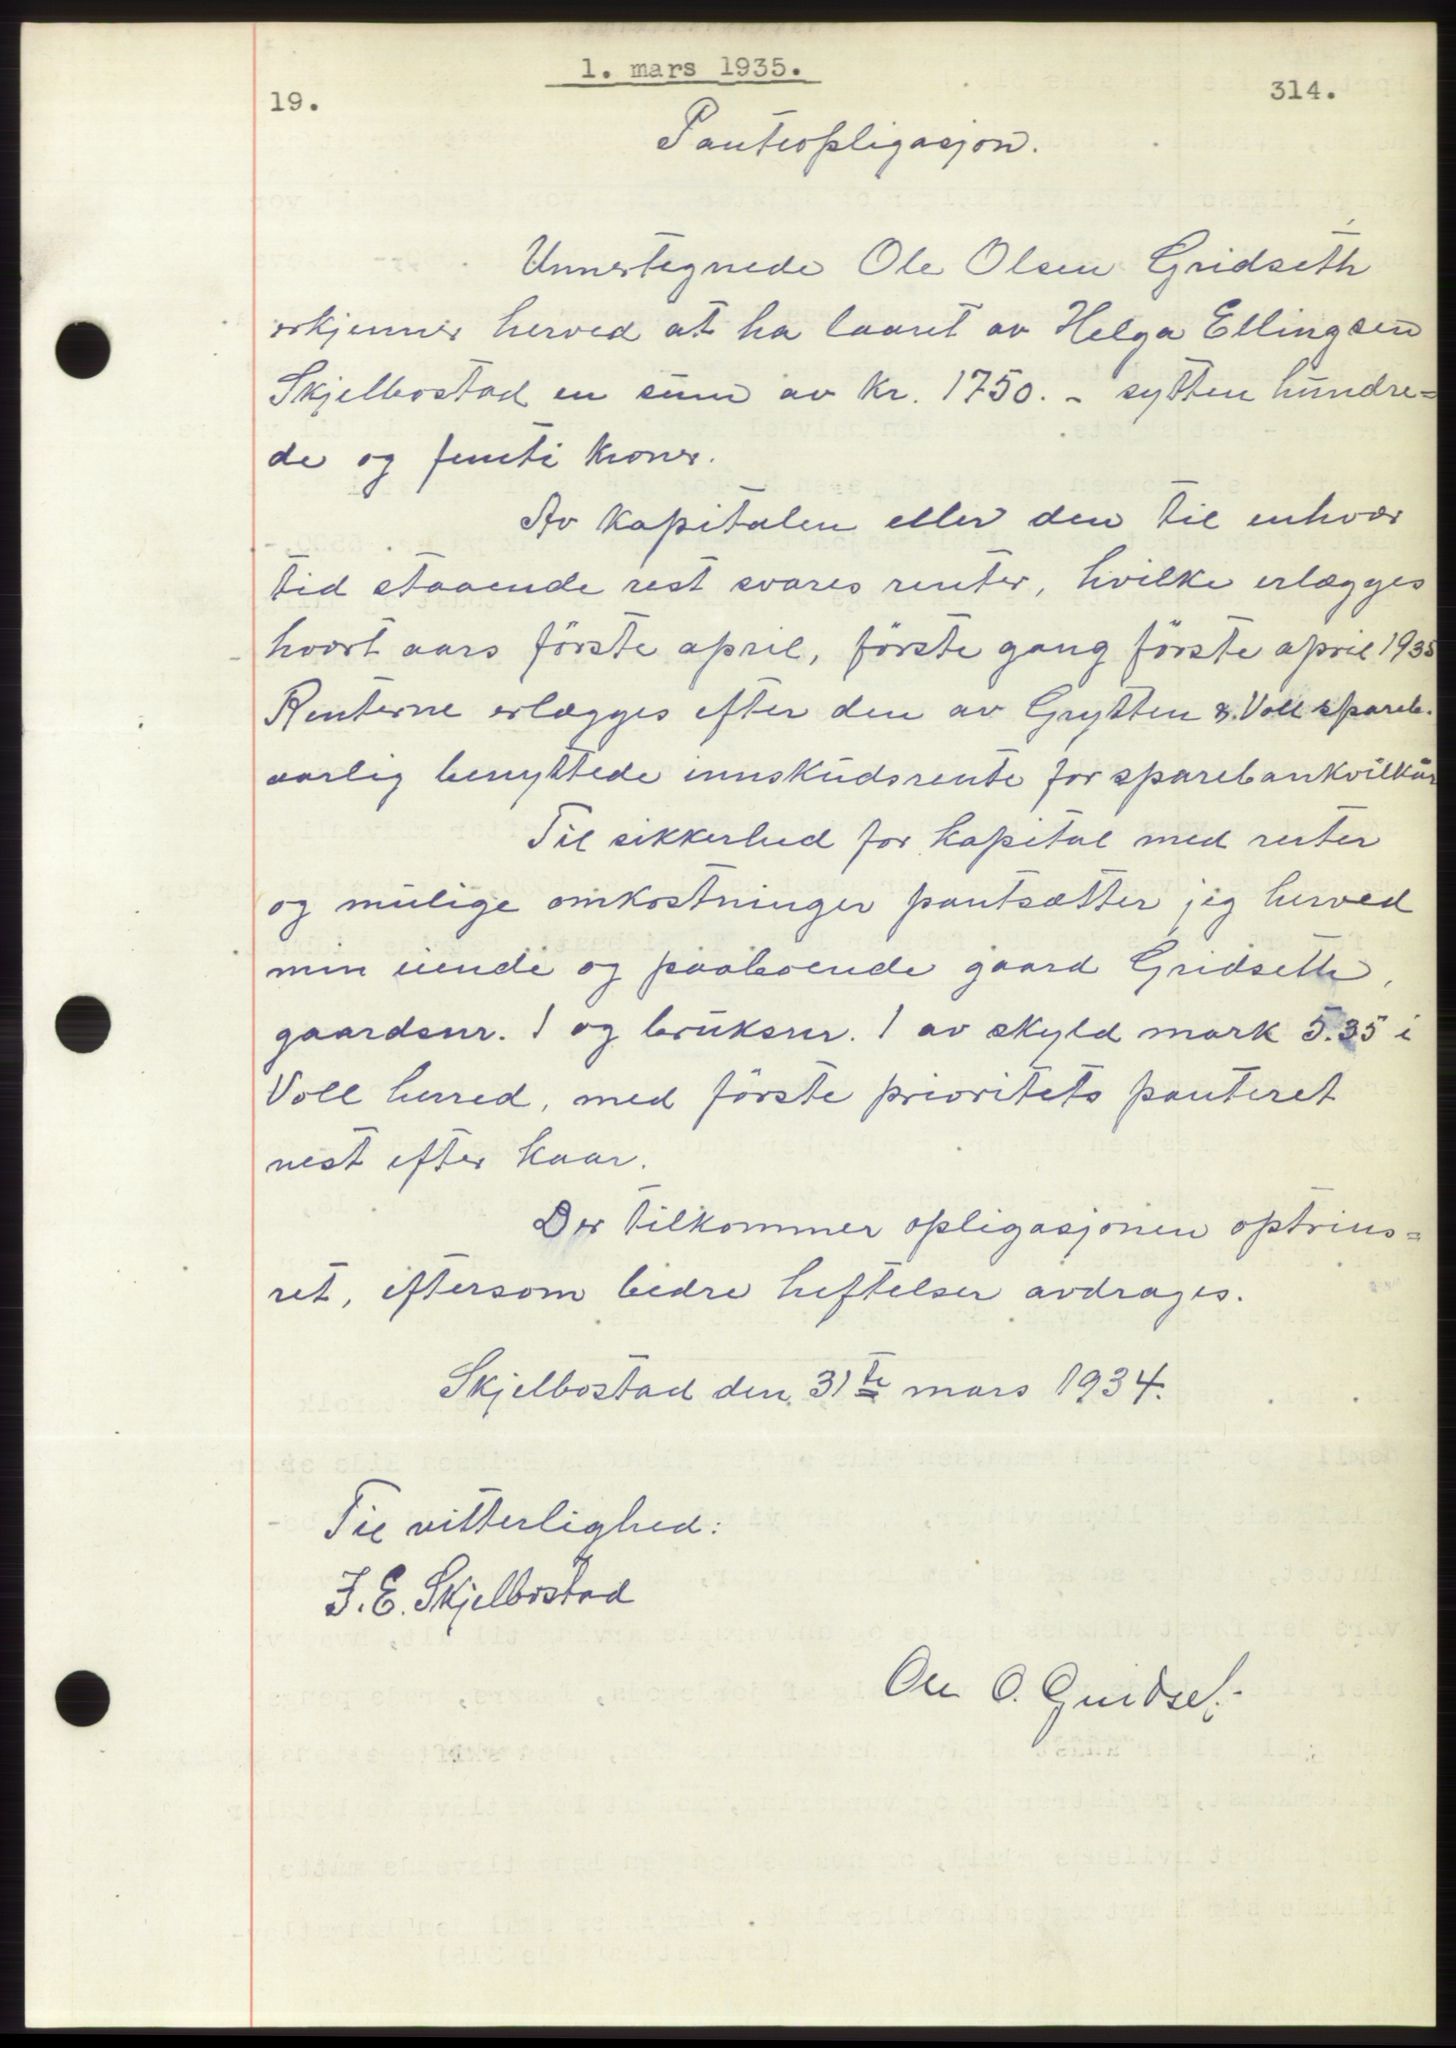 1. mars 1935.
19.
314.
Panteopligasjon.
Unnertegnede Ole Olsen Gridseth
erkjenner herved at ha laaret av Helga Ellingsen
Skjelbostad en sum av kr. 1750. - sytten hundre=
de og femti kroner.
Av kapitalen eller den til enhver
tid staaende rest svares renter, hvilke erlægges
hvert aars förste april, förste gang förste april 1935
Renterne erlægges efter den av Grytten & Voll spareb.
aarlig benyttede innskudsrente for sparebankvilkår
Til sikkerhed for kapital med renter
og mulige omkostninger pantsætter jeg herved
min eiende og paaboende gaard Gridseth,
gaardsnr. 1 og bruksnr. 1 av skyld mark 5.35 i
Voll herred, med förste prioritets panteret
nest efter kaar.
Der tilkommer opligasjonen optrins=
ret, eftersom bedre heftelser avdrages.
Skjelbostad den 31te mars 1934.
Til vitterlighed:
J. E. Skjelbostad
Ole O. Gridset